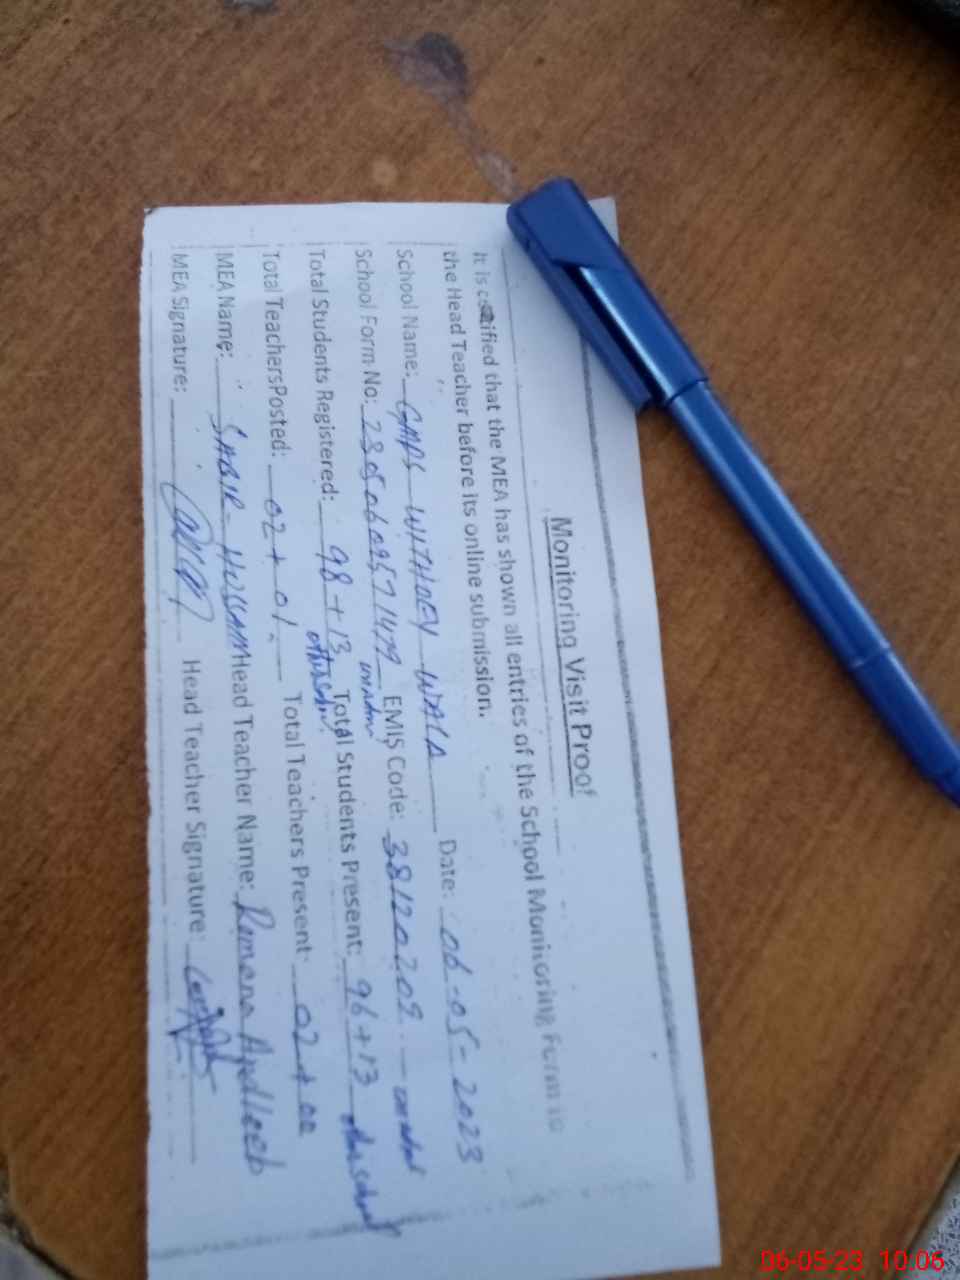 Monitoring Visit Proof
It is certified that the MEA has shown all entries of the School Monitoring Form to
the Head Teacher before its online submission.
School Name: GMPS WITHDEY WALA Date: 06-05-2023
School Form No: 2305060957 1479 EMIS Code: 38120209
Total Students Registered: 98+13 other school Total Students Present: 96+13 other school
Total TeachersPosted: 02+01 Total Teachers Present: 02+00
MEA Name: SABIR HUSSAIN Head Teacher Name: Romana Andleeb
MEA Signature: Head Teacher Signature:
06-05-23 10:06